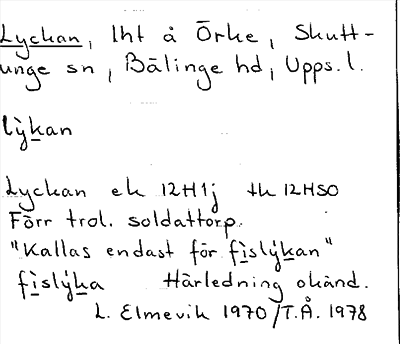 Lyckan, lht å Örke, Skutt-
unge sn, Bälinge hd, Upps. l.
lỳk̲an
Lyckan ek 12H1j tk 12HSO
Förr trol. soldattorp.
"Kallas endast för fi̲slýk̲an"
fi̲slýk̲a Härledning okänd.
L. Elmevik 1970/T.Å. 1978